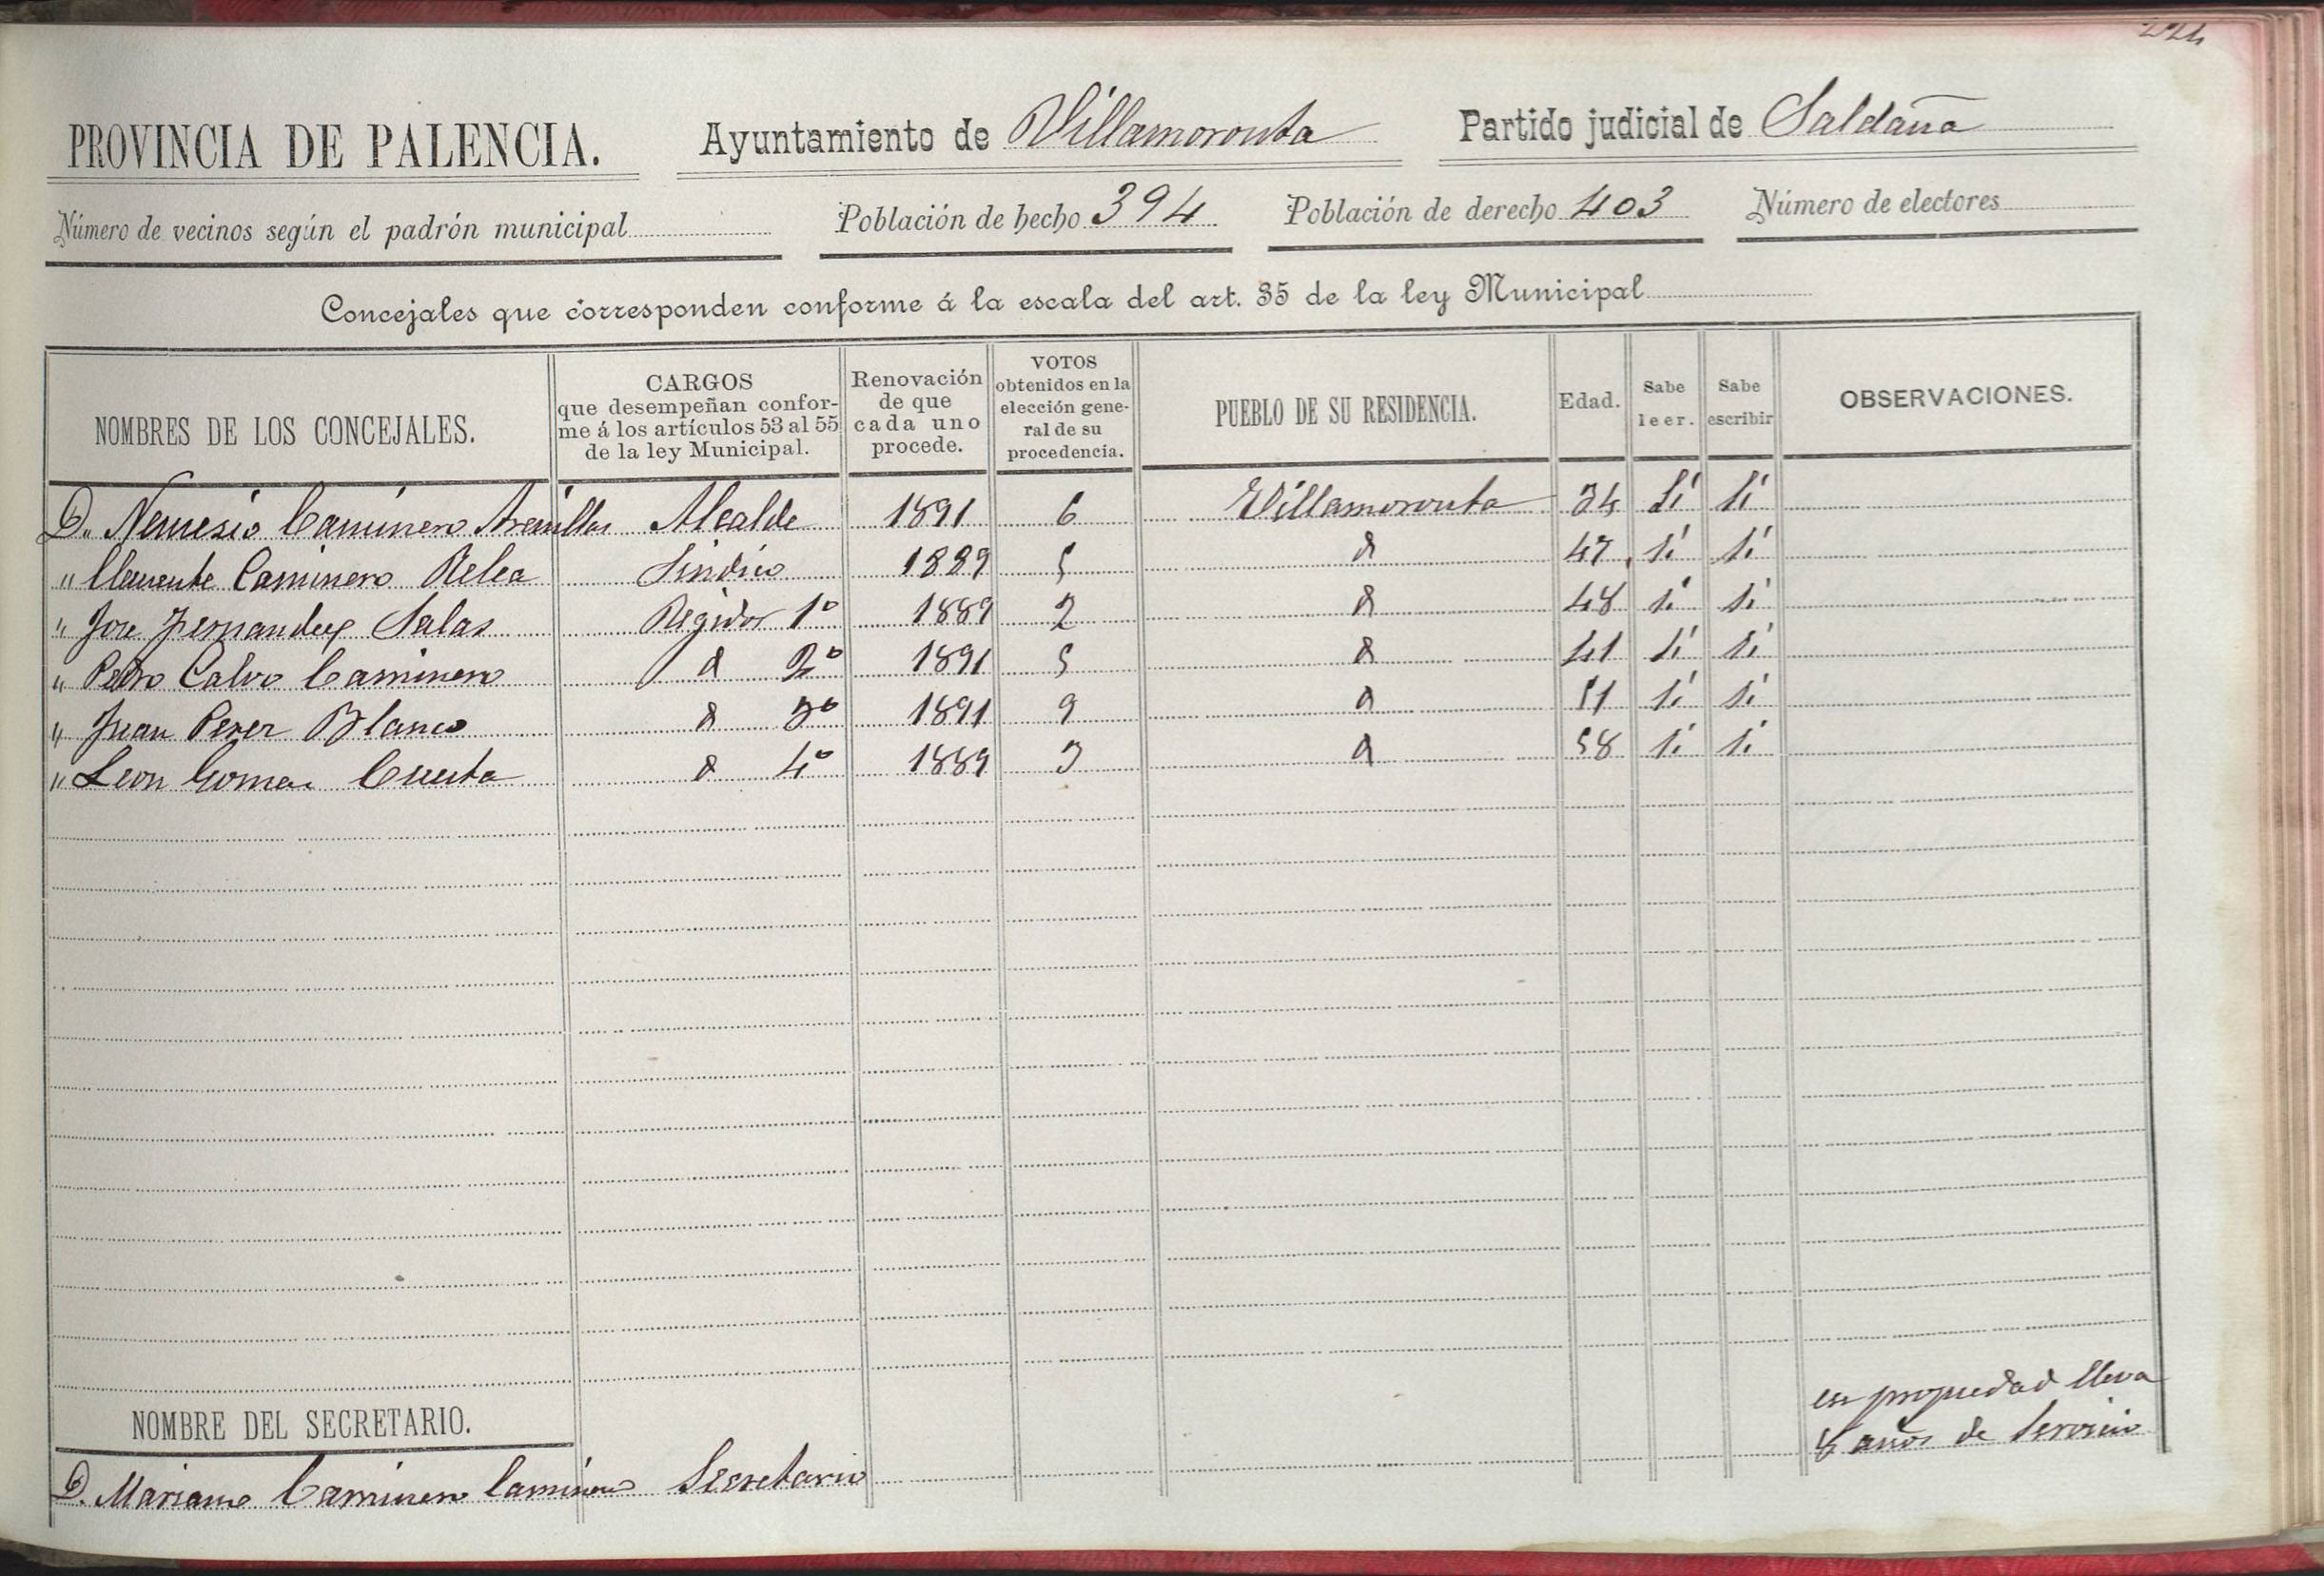 224
PROVINCIA DE PALENCIA. Ayuntamiento de Villamoronta Partido judicial de Saldaña
Número de vecinos según el padrón municipal Población de hecho 394 Población de derecho 403 Número de electores
Concejales que corresponden conforme á la escala del art. 35 de la ley Municipal
NOMBRES DE LOS CONCEJALES.
CARGOS
que desempeñan confor-
me á los artículos 53 al 55
de la ley Municipal.
Renovación
de que
cada uno
procede.
VOTOS
obtenidos en la
elección gene-
ral de su
procedencia.
PUEBLO DE SU RESIDENCIA.
Edad.
Sabe
leer.
Sabe
escribir
OBSERVACIONES.
D. Nemesio Caminero Arenillas Alcalde 1891 6 Villamoronta 34 Sí Sí
" Clemente Caminero Relea Sindico 1889 5 d 47 sí sí
" Jose Fernandez Salas Regidor 1º 1889 2 d 48 sí sí
" Pedro Calvo Caminero d 2º 1891 5 d 41 sí sí
" Juan Perez Blanco d 3º 1891 9 d 51 sí sí
" Leon Gomez Cuesta d 4º 1889 3 d 58 sí sí
NOMBRE DEL SECRETARIO.
D. Mariano Caminero Caminero Secretario en propiedad lleva
años de servicio